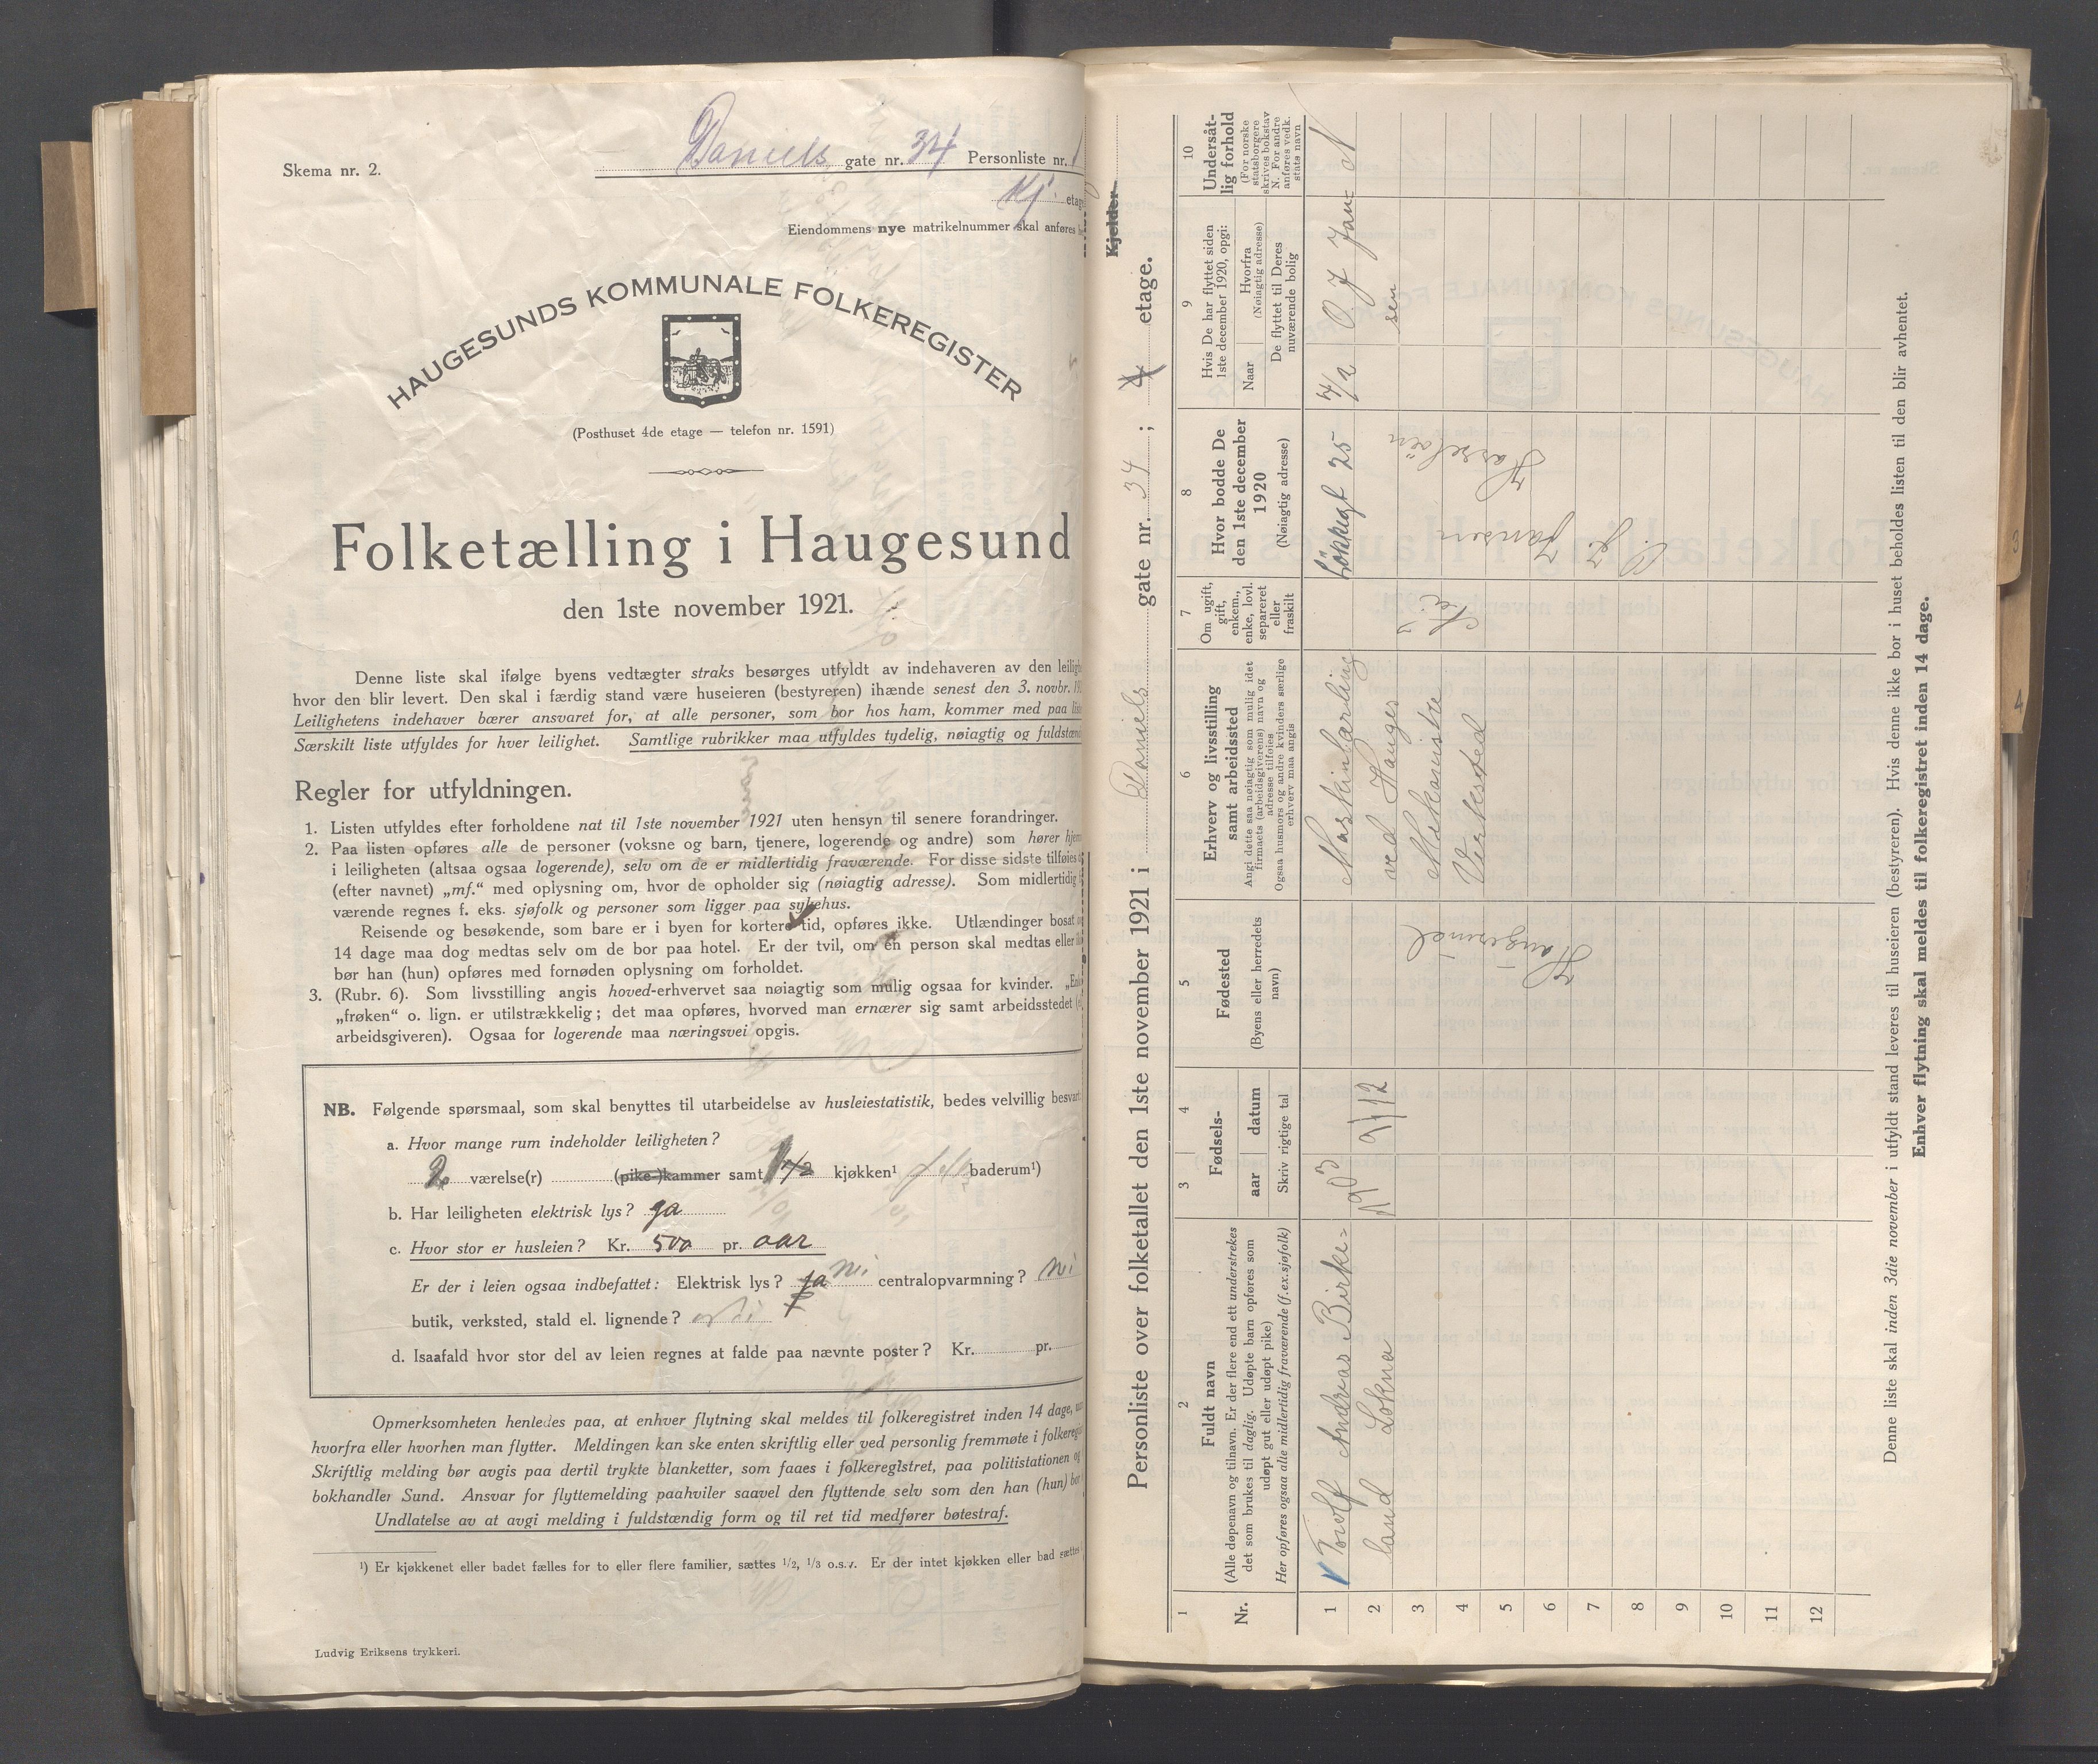 Skema nr. 2.
Daniels gate nr. 34 Personliste nr. 1
Kj. etag
Eiendommens nye matrikelnummer skal anføres
HAUGESUNDS KOMMUNALE FOLKEREGISTER
(Posthuset 4de etage — telefon nr. 1591)
Folketælling i Haugesund
den 1ste november 1921.
Denne liste skal ifølge byens vedtægter straks besørges utfyldt av indehaveren av den leiligh
hvor den blir levert. Den skal i færdig stand være huseieren (bestyreren) ihænde senest den 3. novbr. 19
Leilighetens indehaver bærer ansvaret for, at alle personer, som bor hos ham, kommer med paa list
Særskilt liste utfyldes for hver leilighet. Samtlige rubrikker maa utfyldes tydelig, nøiagtig og fuldstænd
Regler for utfyldningen.
1. Listen utfyldes efter forholdene nat til 1ste november 1921 uten hensyn til senere forandringer.
2. Paa listen opføres alle de personer (voksne og barn, tjenere, logerende og andre) som hører hjem
i leiligheten (altsaa ogsaa logerende), selv om de er midlertidig fraværende. For disse sidste tilføies
(efter navnet) „mf.“ med oplysning om, hvor de opholder sig (nøiagtig adresse). Som midlertidig
værende regnes f. eks. sjøfolk og personer som ligger paa sykehus.
Reisende og besøkende, som bare er i byen for kortere tid, opføres ikke. Utlændinger bosat
14 dage maa dog medtas selv om de bor paa hotel. Er der tvil, om en person skal medtas eller
bør han (hun) opføres med fornøden oplysning om forholdet.
3. (Rubr. 6). Som livsstilling angis hoved-erhvervet saa nøiagtig som mulig ogsaa for kvinder. „Enk
„frøken“ o. lign. er utilstrækkelig; det maa opføres, hvorved man ernærer sig samt arbeidsstedet
arbeidsgiveren). Ogsaa for logerende maa næringsvei opgis.
NB. Følgende spørsmaal, som skal benyttes til utarbeidelse av husleiestatistik, bedes velvillig besvart
a. Hvor mange rum indeholder leiligheten?
2 værelse(r) (pike-)kammer samt 1 1/2 kjøkken¹ baderum¹)
b. Har leiligheten elektrisk lys? ja
c. Hvor stor er husleien? Kr. 500 pr. aar
Er der i leien ogsaa indbefattet: Elektrisk lys? ja ni centralopvarmning? ni
butik, verksted, stald el. lignende?
d. Isaafald hvor stor del av leien regnes at falde paa nævnte poster? Kr. pr.
Opmerksomheten henledes paa, at enhver flytning skal meldes til folkeregistret inden 14 dage,
hvorfra eller hvorhen man flytter. Meldingen kan ske enten skriftlig eller ved personlig fremmøte i folkeregi
Skriftlig melding bør avgis paa dertil trykte blanketter, som faaes i folkeregistret, paa politistationen og
bokhandler Sund. Ansvar for flyttemelding paahviler saavel den flyttende selv som den han (hun) bor
Undlatelse av at avgi melding i fuldstændig form og til ret tid medfører bøtestraf.
¹) Er kjøkkenet eller badet fælles for to eller flere familier, sættes 1/2, 1/3 o.s.v. Er der intet kjøkken eller bad sættes
Ludvig Eriksens trykkeri.
Kjelder
Personliste over folketallet den 1ste november 1921 i Daniels gate nr. 34 ; 4 etage.
1 2 3 4 5 6 7 8 9 10
Nr.
Fuldt navn
(Alle døpenavn og tilnavn. Er der flere end ett understrekes
det som brukes til daglig. Udøpte barn opføres som
udøpt gut eller udøpt pike)
Her opføres ogsaa alle midlertidig fraværende (f.ex.sjøfolk)
Fødsels-
aar datum
Skriv rigtige tal
Fødested
(Byens eller herredets
navn)
Erhverv og livsstilling
samt arbeidssted
Angi dette saa nøiagtig som mulig idet
firmaets (arbeidsgiverens) navn og
adresse tilføies
Ogsaa husmors og andre kvinders særlige
erhverv maa angis
Om ugift,
gift,
enkem.,
enke, lovl.
separeret
eller
fraskilt
Hvor bodde De
den 1ste december
1920
(Nøiagtig adresse)
Hvis De har flyttet siden
1ste december 1920, opgi:
Naar
Hvorfra
(Nøiagtig adresse)
De flyttet til Deres
nuværende bolig
Undersåt-
lig forhold
(For norske
statsborgere
skrives bokstav
N. For andre
anføres vedk.
stats navn
1 Torolf Andreas Birke- Maskinlærling Løkkegt 25 4/2 O. J Jan- N
2 land Lokna 1903 9/12 ved Hauges sen
3 Haugesund Mekaniske
4 Verksted
5
6
7
8
9
10
11
12
O. J. Jansen
Denne liste skal inden 3die november i utfyldt stand leveres til huseieren (bestyreren). Hvis denne ikke bor i huset beholdes listen til den blir avhentet.
Enhver flytning skal meldes til folkeregistret inden 14 dage.